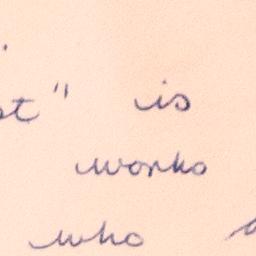 st" is
works
who